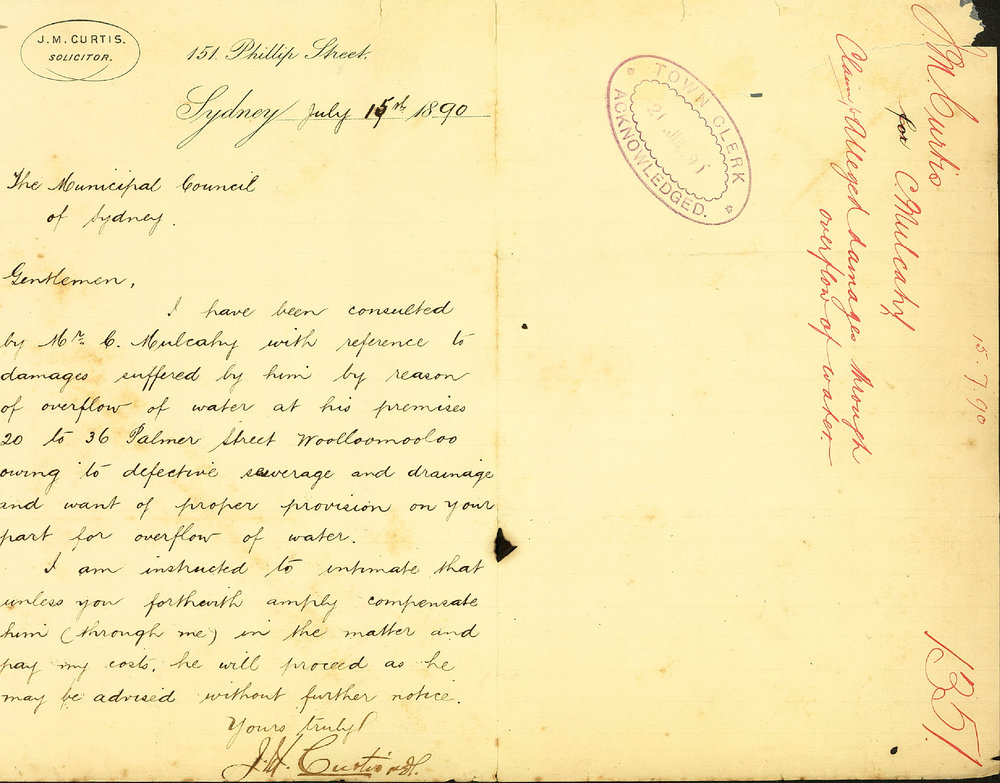 J. M. CURTIS.
SOLICITOR.
151. Phillip Street.
Sydney July 15th 1890
The Municipal Council
of Sydney.
Gentlemen,
I have been consulted
by Mr. C. Mulcahy with reference to
damages suffered by him by reason
of overflow of water at his premises
20 to 36 Palmer Street Woolloomooloo
owing to defective sewerage and drainage
and want of proper provision on your
part for overflow of water.
I am instructed to intimate that
unless you forthwith amply compensate
him (through me) in the matter and
pay my costs, he will proceed as he
may be advised without further notice.
Yours truly
J. M. Curtis
TOWN CLERK
21 JUL 91
ACKNOWLEDGED.
J. M. Curtis
for C. Mulcahy
Alleged damages through
overflow of water.
15.7.90
1351